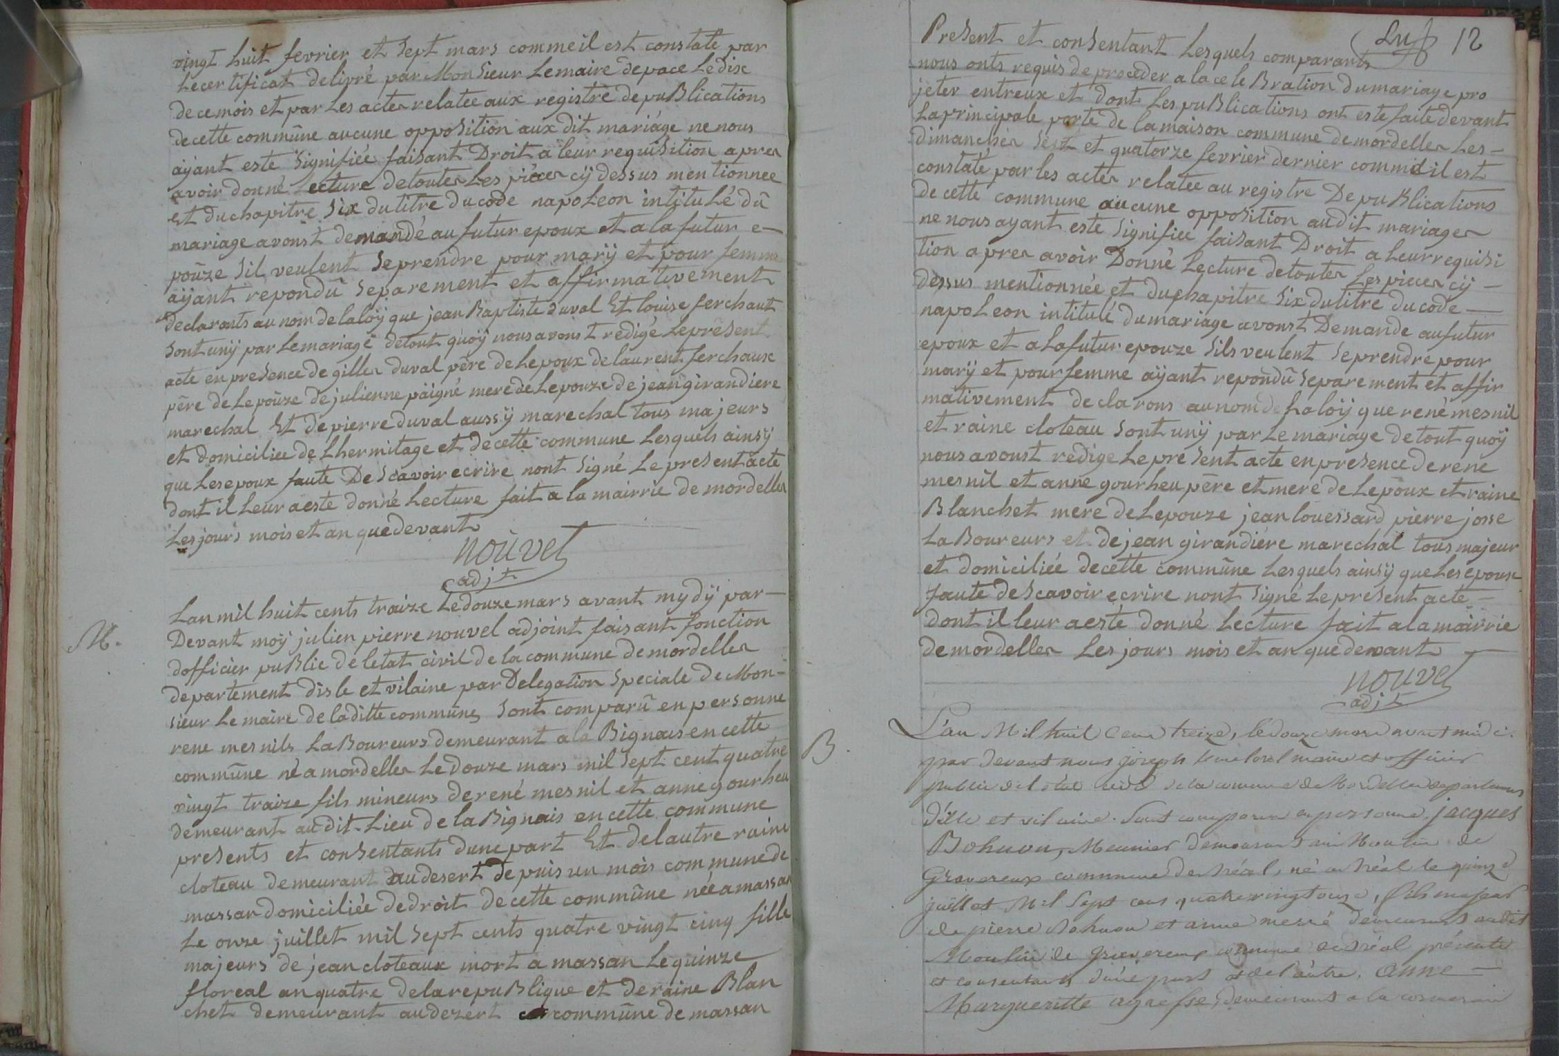 vingt huit fevrier et sept mars commeil est constate par
Lecertificat delivré par Monsieur Lemaire depacé Ledix
decemois et par Les actes relatee aux registre depuBlications
decette commûne aucune opposition aux dit mariáge ne nous
ayant este signifiée faisant Droit a leur requisition apres
avoir donné Lecture detoutes Les pieces cÿ dessus mentionnee
et duchapitre six dutitre ducode napoleon intitulé dû
mariage avonst demandé aufutur epoux et a la futur e-
poûze sil veulent seprendre pour marÿ et pour femme
aÿant repondû separement et affirmativement
Declarons au nom delaloÿ que jean Baptiste duval Et louise ferchaut
sont unÿ par Lemariage detout quoÿ nous avonst redigé Leprésent
acte en presence de gilles duval père deLepoux de laurent ferchaux
père de Lepoûze de julienne paigné mere deLepouze de jean girandiere
marechal Et de pierre duval aussÿ marechal tous majeurs
et domiciliee de Lhermitage et decette commune Lesquels ainsÿ
que Lesepoux faute De scavoir ecrire nont signé Le present acte
dont il Leur aeste donné Lecture fait a la mairrie de mordelles
Lesjours mois et an quedevant
nouvel
adjt
M.
Lan mil huit cents traize Ledouze mars avant mydÿ par-
Devant moÿ julien pierre nouvel adjoint faisant fonction
dofficier puBlic de letat civil de la commune demordelles
departement disle et vilaine par Delegation speciale de Mon-
sieur Le maire de laditte commûne, sont comparû en personne
rene mesnils LaBoureurs demeurant a la Bignais en cette
commûne né a mordelles Ledouze mars mil sept cent quatre
vingt traize fils mineurs derené mesnil et anne gourheu
demeurant audit-Lieu de la Bignais en cette commune
presents et consentants dune part Et delautre raine
cloteau demeurant audesert depuis un mois commune de
massan domiciliée dedroit decette commûne née a massan
Le onze juillet mil sept cents quatre vingt cinq fille
majeurs de jean cloteaux mort a massan Lequinze
floreal an quatre delarepuBlique et deraine Blan
chet demeurant audezert commûne de massan
12
Present et consentant Lesquels comparants
nous onts requis deproceder a la ce le Bration dumariage pro
jeter entreux et dont Les puBlications ont este faite devant
La principale porte de la maison commune demordelles Les-
dimanches sept et quatorze fevrier dernier commeil est
constaté par les actes relatee au registre De puBlications
de cette commune aucune opposition audit mariages
ne nous ayant este signifiee faisant Droit a Leurrequisi
tion apres avoir Donné Lecture detoutes Les pieces cÿ-
dessus mentionnée et duchapitre six dutitre ducode-
napoleon intitulé dumariage avonst Demande aufutur
epoux et a Lafutur epouze sils veulent seprendre pour
marÿ et pour femme aÿant repondû separement et affir
mativement declarons au nom de La loÿ que rené mesnil
et raine cloteau sont unÿ par Le mariage detout quoÿ
nous avonst redige Le present acte en presence derene
mesnil et anne gourheu pere et mere de Lepoux et raine
Blanchet mere de Lepouze jean louessard pierre josse
LaBoureurs et de jean girandiere marechal tous majeur
et domiciliée decette commûne Lesquels ainsÿ que Lesepoux
faute descavoir ecrire nont signe Le present acte-
dont il leur aesté donné Lecture fait a la mairrie
demordelles Les jours mois et an quedevant
nouvel
adjt
B.
L'an Mil huit Cent treize, le douze mars avant midi.
par devant nous joseph maire et officier
public de l'état civil de la commune de Mordelles departement
d'ille et vilaine. Sont comparu en personne jacques
Bohuon, Meunier demeurant au Moulin de
Gravereux commune deRéal, né au Réal le quinze
juillet Mil Sept cent quatrevingtonze, fils majeur
de pierre Bohuon et anne demeurant audit
Moulin de Gravereux commune de Réal présents
et consentants d'une part et de l'autre. Anne-
Margueritte agnesse demeurant a la